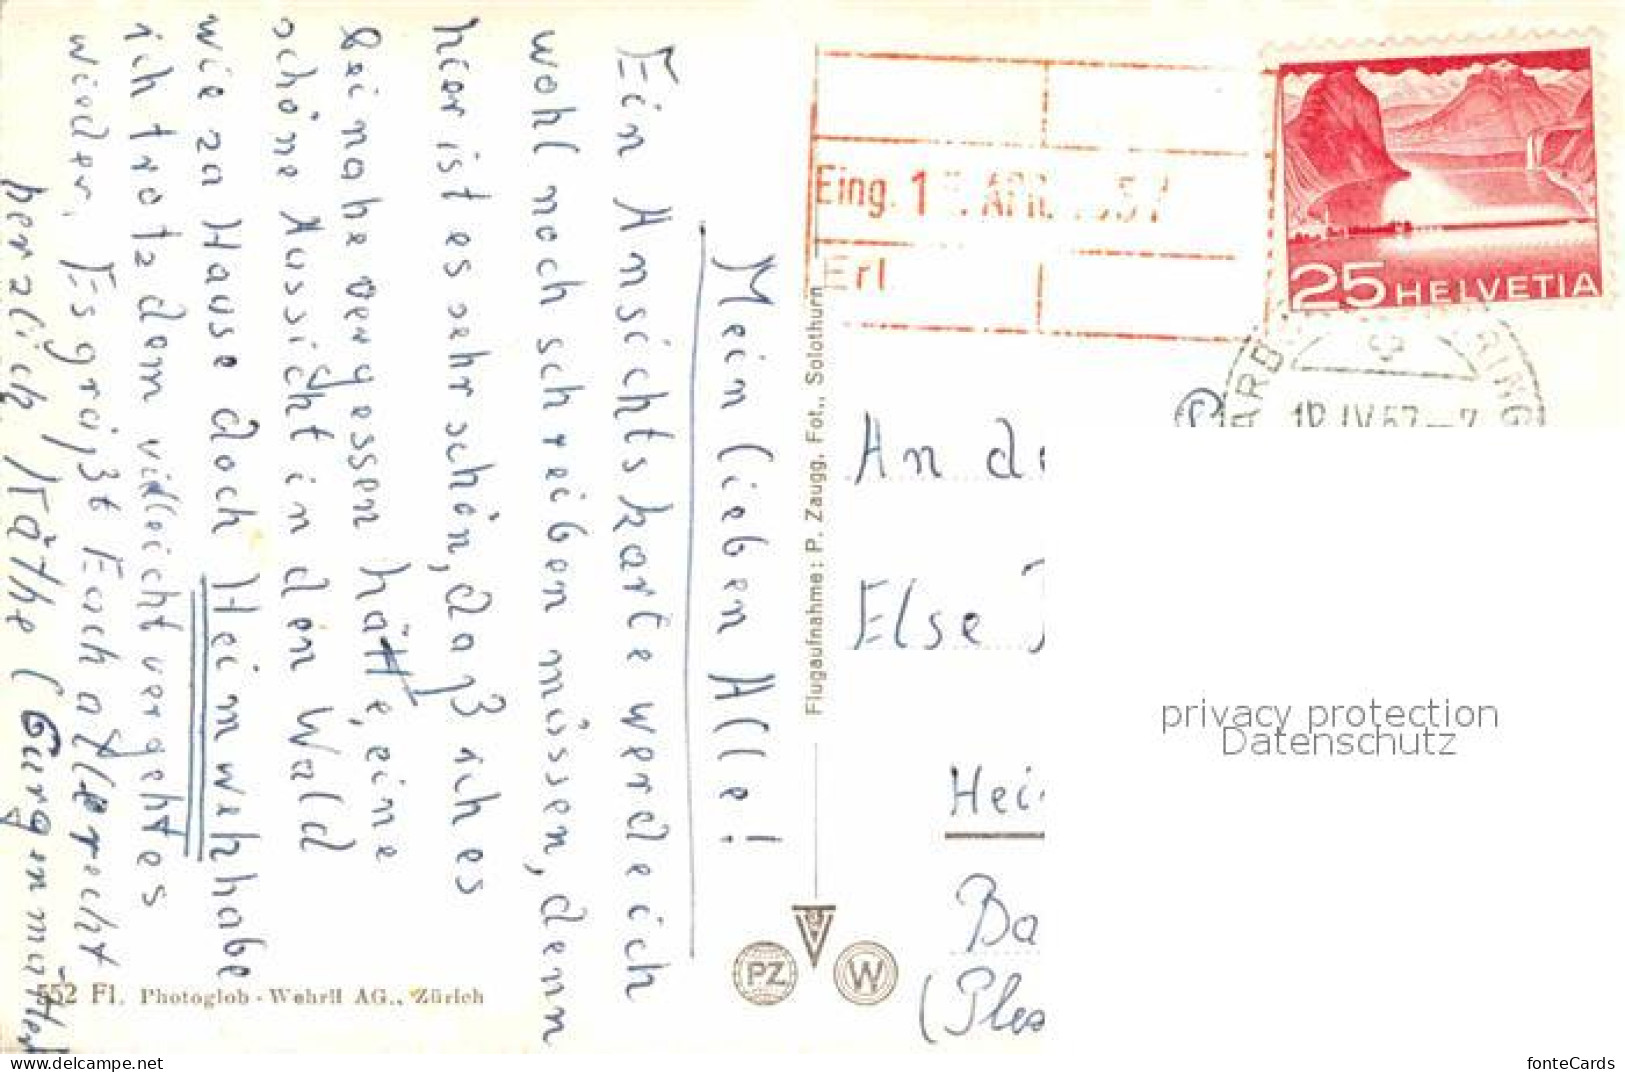 Mein lieben Alle!
Ein Ansichtskarte werde ich
wohl noch schreiben müssen, denn
hier ist es sehr schön, daß ich es
beinahe vergessen hätte, eine
schöne Aussicht in den Wald
wie za Hause doch Heimweh habe
ich trotzdem villeicht vergeht es
wieder. Es grüßt Euch alle recht
herzlich Käthe (
552 Fl. Photoglob-Wehrli AG., Zürich
Flugaufnahme: P. Zaugg, Fot., Solothurn
PZ
W
Eing. 1 APR. 57
Erl
25 HELVETIA
ARB RING
IV 57-7
An d
Else
Hei
Ba
(Ples
privacy protection
Datenschutz
www.delcampe.net
fonteCards